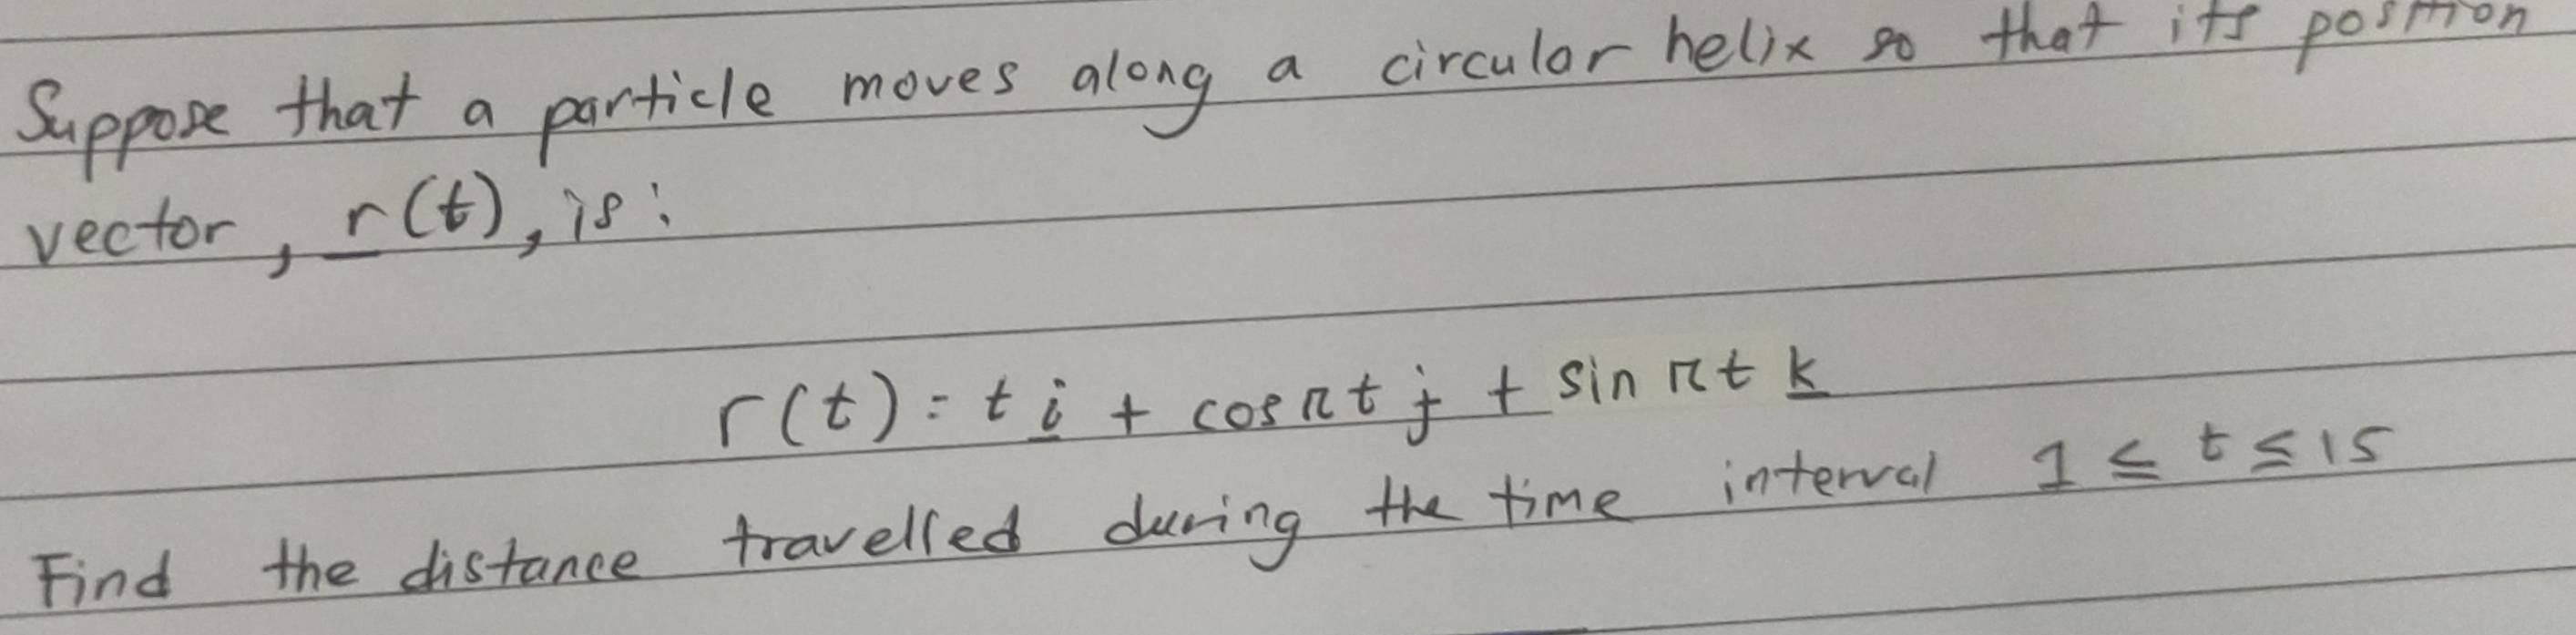 Suppose that a particle moves along a circular helix so that its position
vector, r(t), is:
r(t) = t i + cos πt j + sin πt k
Find the distance travelled during the time interval 1 ≤ t ≤ 15